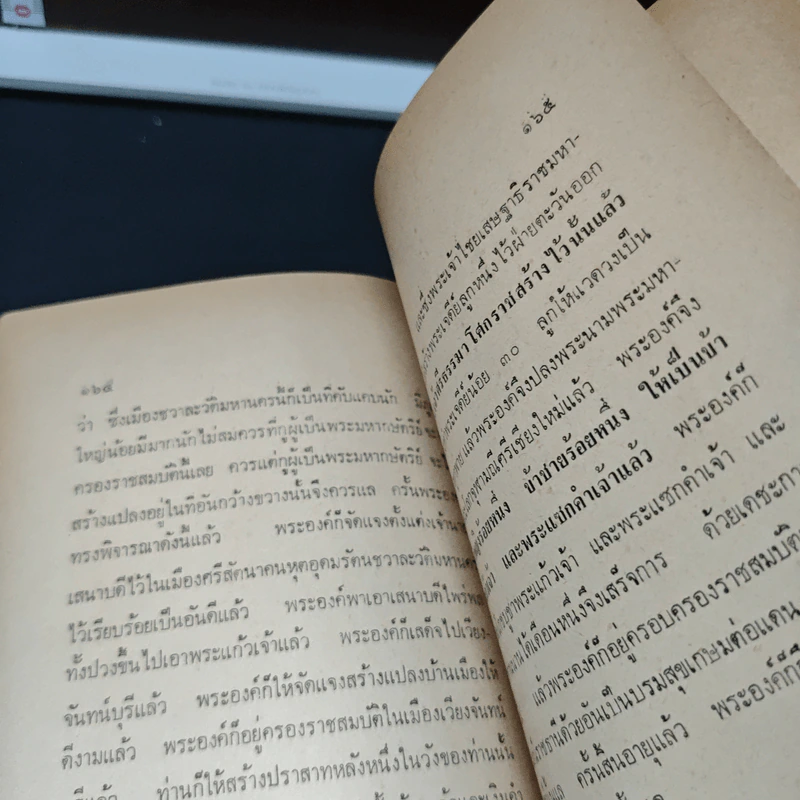 ๑๖๔
ว่า ซึ่งเมืองชวาละวัติมหานครนี้ก็เป็นที่คับแคบนัก
ใหญ่น้อยมีมากนักไม่สมควรที่กูผู้เป็นพระมหากษัตริย์ จะ
ครองราชสมบัตินี้เลย ควรแต่กูผู้เป็นพระมหากษัตริย์ จะ
สร้างแปลงอยู่ในที่อันกว้างขวางนั้นจึงควรแล ครั้นพระองค์
ทรงพิจารณาดังนี้แล้ว พระองค์ก็จัดแจงตั้งแต่งเจ้านาย
เสนาบดีไว้ในเมืองศรีสัตนาคนหุตอุดมรัตนชวาละวัติมหานคร
ไว้เรียบร้อยเป็นอันดีแล้ว พระองค์พาเอาเสนาบดีไพร่พล
ทั้งปวงขึ้นไปเอาพระแก้วเจ้าแล้ว พระองค์ก็เสด็จไปเวียง-
จันทน์บุรีแล้ว พระองค์ก็ให้จัดแจงสร้างแปลงบ้านเมืองให้
ดีงามแล้ว พระองค์ก็อยู่ครองราชสมบัติในเมืองเวียงจันทน์
แล้ว ท่านก็ให้สร้างปราสาทหลังหนึ่งในวังของท่านนั้น
๑๖๕
และซึ่งพระเจ้าไชยเสษฐาธิราชมหา-
พระเจดีย์ลูกหนึ่งไว้ฝ่ายตะวันออก
ศรีธรรมาโศกราชสร้างไว้นั้นแล้ว
พระเจดีย์น้อย ๓๐ ลูกให้แวดวงเป็น
แล้วพระองค์จึงปลงพระนามพระมหา-
จุฬามณีศรีเชียงใหม่แล้ว พระองค์จึง
ร้อยหนึ่ง ข้าชายร้อยหนึ่ง ให้เป็นข้า
และพระแซกคำเจ้าแล้ว พระองค์ก็
พระแก้วเจ้า และพระแซกคำเจ้า และ
ได้เดือนหนึ่งจึงเสร็จการ ด้วยเดชะ
แล้วพระองค์ก็อยู่ครอบครองราชสมบัติ
ด้วยอันเป็นบรมสุขเกษมต่อแดน
ครั้นสิ้นอายุแล้ว พระองค์ก็